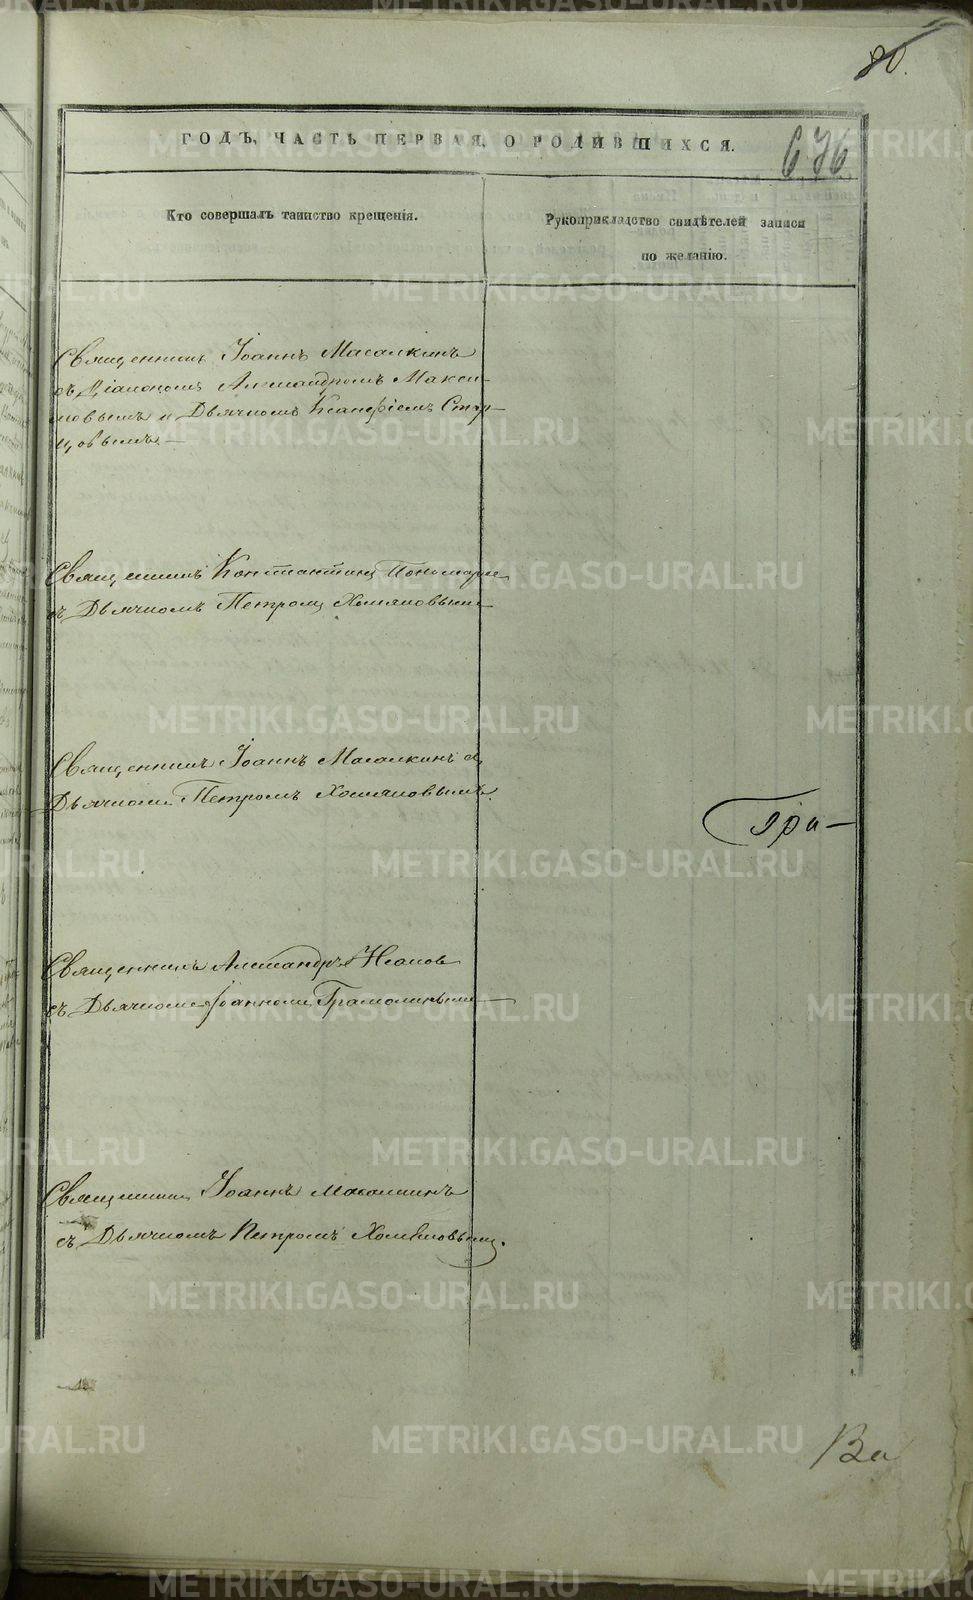 80.
ГОДЪ, ЧАСТЬ ПЕРВАЯ, О РОДИВШИХСЯ.
676
Кто совершалъ таинство крещенія.
Рукоприкладство свидѣтелей записи
по желанію.
Священникъ Іоаннъ Масалкинъ
съ Діакономъ Александромъ Макси-
мовымъ и Дьячкомъ Ксанфіемъ Стар-
цовымъ.
Священникъ Константинъ Пономарев
съ Дьячкомъ Петромъ Хомяковымъ
Священникъ Іоаннъ Масалкинъ съ
Дьячкомъ Петромъ Хомяковымъ.
Гра-
Священникъ Александръ
съ Дьячкомъ Іоанномъ Грамолинымъ
Священникъ Іоаннъ Масалкинъ
съ Дьячкомъ Петромъ Хомяковымъ.
METRIKI.GASO-URAL.RU